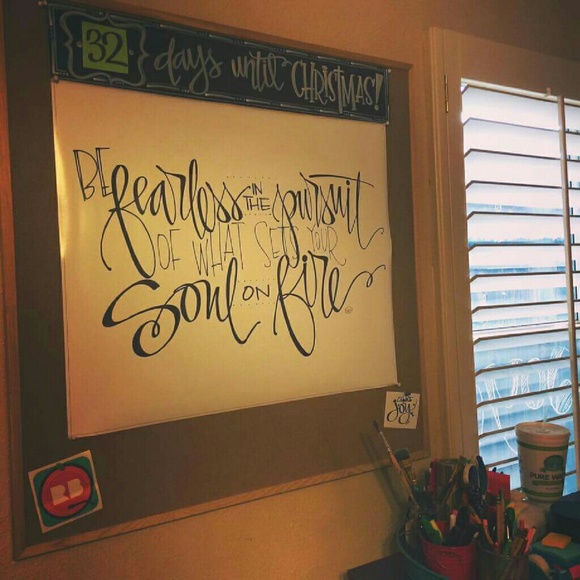 32 days until CHRISTMAS!
BE fearless IN THE pursuit
OF WHAT SETS YOUR
Soul ON fire
Joy
RB
PURE WA